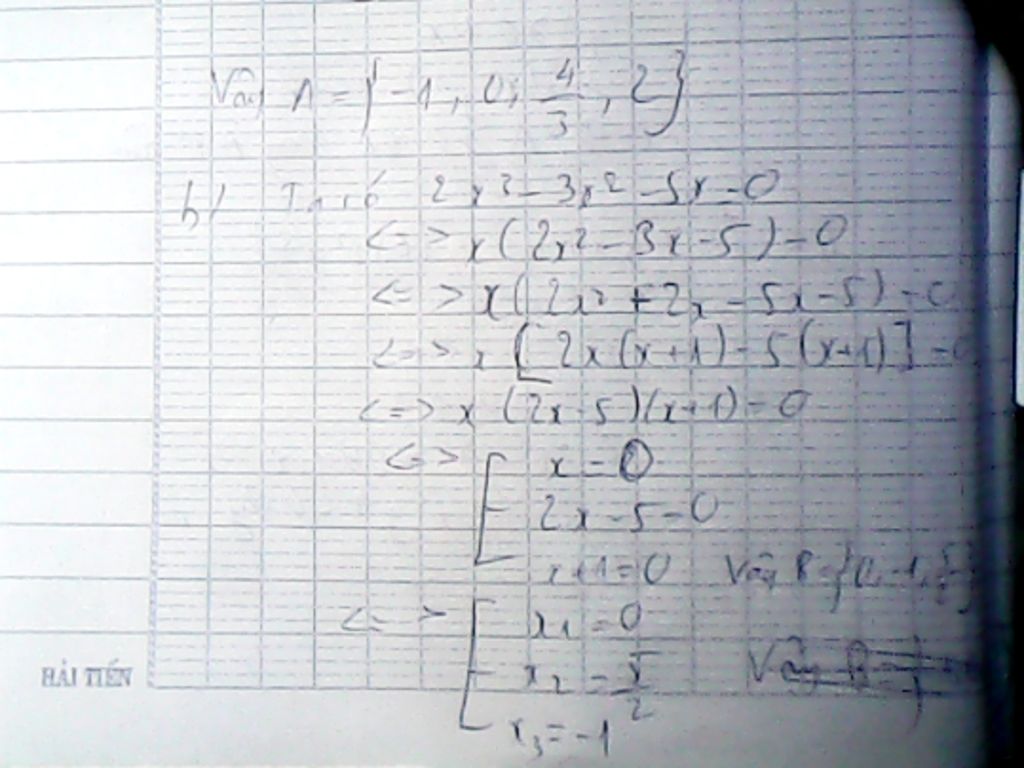 Vậy A = { -1, 0; 4/3, 2}
b/ Ta có 2x³ - 3x² - 5x = 0
<=> x(2x² - 3x - 5) = 0
<=> x(2x² + 2x - 5x - 5) = 0
<=> x [2x(x+1) - 5(x+1)] = 0
<=> x (2x-5)(x+1) = 0
<=> [ x = 0
2x - 5 = 0
x+1 = 0 Vậy B = {0, -1, 5/2}
<=> [ x1 = 0
x2 = 5/2 Vậy B = {
x3 = -1
HẢI TIẾN